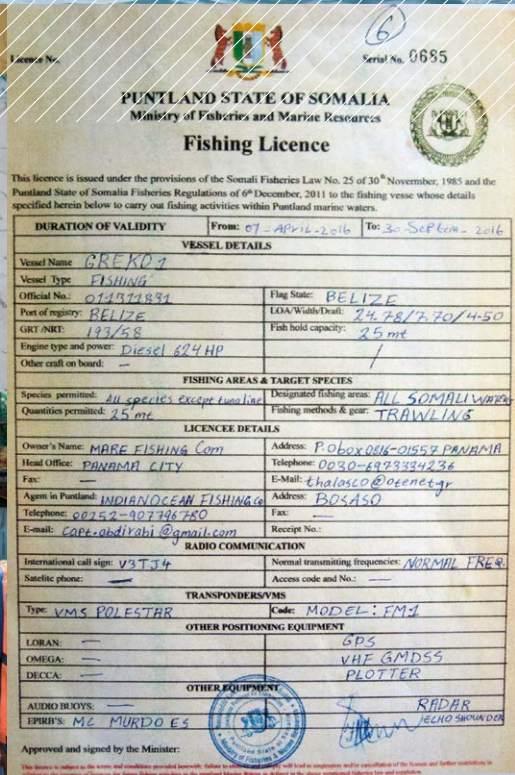 6
Licence No.
Serial No. 0685
PUNTLAND STATE OF SOMALIA
Ministry of Fisheries and Marine Resources
Fishing Licence
This licence is issued under the provisions of the Somali Fisheries Law No. 25 of 30th Novermber, 1985 and the
Puntland State of Somalia Fisheries Regulations of 6th December, 2011 to the fishing vesse whose details
specified herein below to carry out fishing activities within Puntland marine waters.
DURATION OF VALIDITY From: 07-APRIL-2016 To: 30-SEPtem-2016
VESSEL DETAILS
Vessel Name GREKO 1
Vessel Type FISHING
Official No.: 011311831 Flag State: BELIZE
Port of registry: BELIZE LOA/Width/Draft: 24.78/7.70/4.50
GRT /NRT: 193/58 Fish hold capacity: 25 mt
Engine type and power: Diesel 624 HP
Other craft on board: —
FISHING AREAS & TARGET SPECIES
Species permitted: All species except tuna line Designated fishing areas: ALL SOMALI WATERS
Quantities permitted: 25 mt Fishing methods & gear: TRAWLING
LICENCEE DETAILS
Owner's Name: MARE FISHING Com Address: P.O box 0816-01557 PANAMA
Head Office: PANAMA CITY Telephone: 0030-6973334236
Fax: — E-Mail: thalasco@otenet.gr
Agent in Puntland: INDIAN OCEAN FISHING Co Address: BOSASO
Telephone: 00252-907796780 Fax: —
E-mail: Capt.abdirahi@gmail.com Receipt No.:
RADIO COMMUNICATION
International call sign: V3TJ4 Normal transmitting frequencies: NORMAL FREQ.
Satelite phone: — Access code and No.: —
TRANSPONDERS/VMS
Type: VMS POLESTAR Code: MODEL: FM1
OTHER POSITIONING EQUIPMENT
LORAN: — GPS
OMEGA: — VHF GMDSS
DECCA: — PLOTTER
OTHER EQUIPMENT
AUDIO BUOYS: — RADAR
EPIRB'S: MC MURDO ES ECHO SHOUNDER
Approved and signed by the Minister: